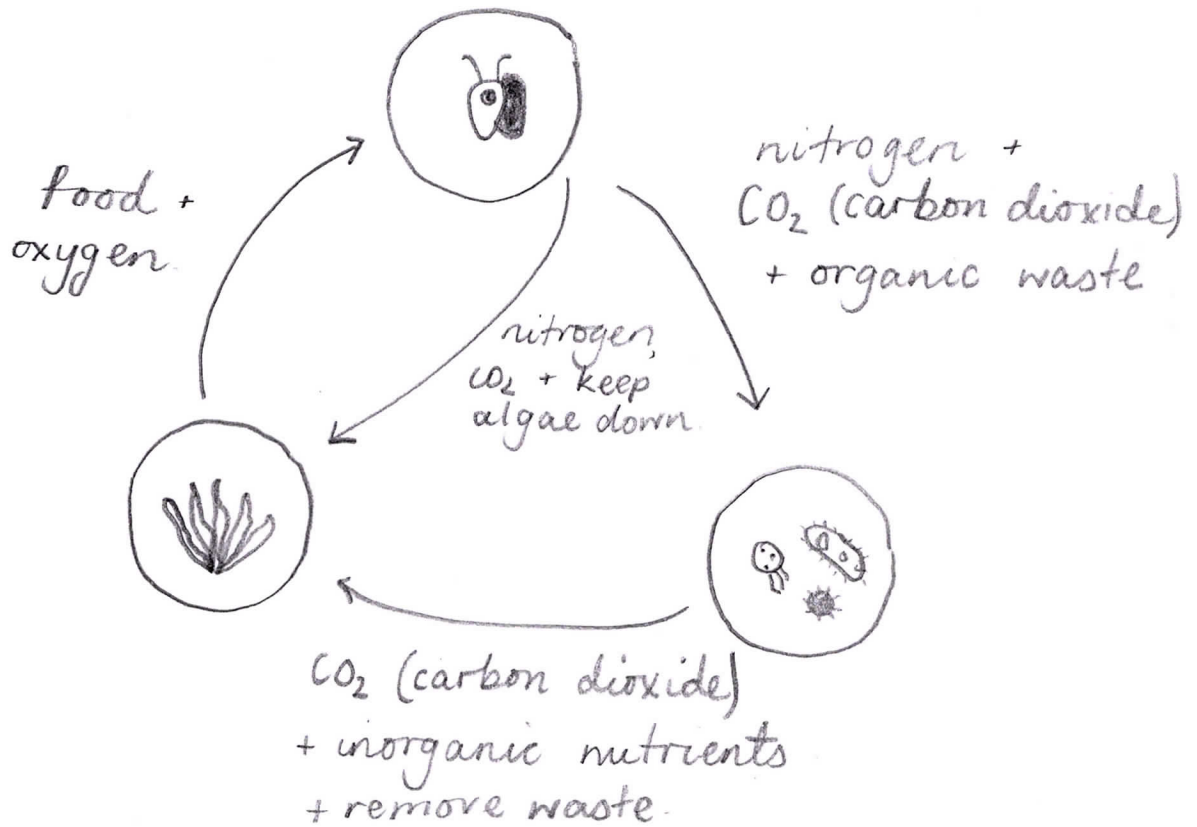 food +
oxygen.
nitrogen +
CO₂ (carbon dioxide)
+ organic waste
nitrogen,
CO₂ + keep
algae down.
CO₂ (carbon dioxide)
+ inorganic nutrients
+ remove waste.